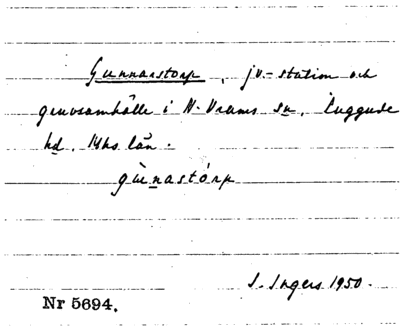 Gunnarstorp, jv-station och
gruvsamhälle i N. Vrams sn, Luggude
hd. Mhs län.
gùnastórp
I. Ingers 1950.
Nr 5694.